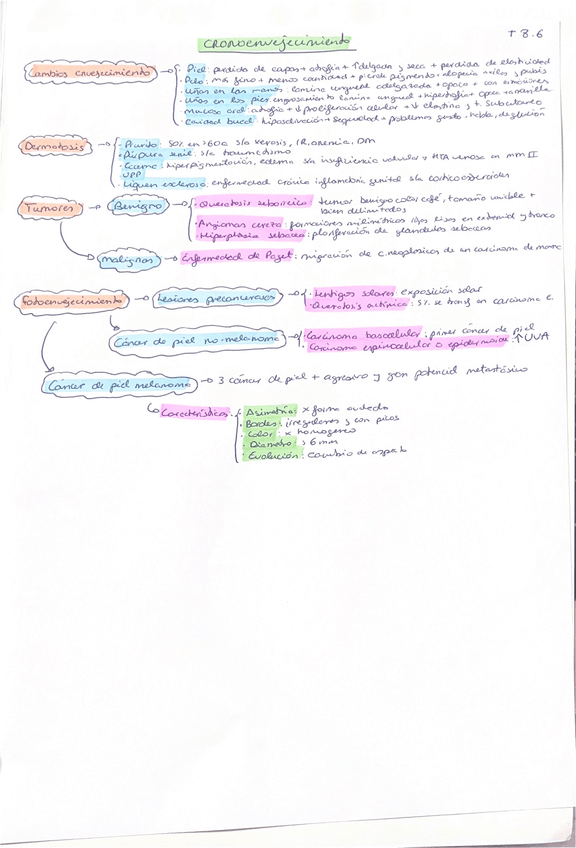 T 8.6
CRONOENVEJECIMIENTO
Cambios envejecimiento → · Piel: perdida de capas + atrofia + ↑ delgada y seca + perdida de elasticidad
· Pelo: más fino + menos cantidad + pierde pigmento · alopecia axilas y pubis
· Uñas en las manos: lamina ungueal adelgazada + opaca + con
· Uñas en los pies: engrosamiento lamina ungueal + hipertrofia + opaca + amarilla
· Mucosa oral: atrofia + ↓ proliferación celular + ↓ elastina y t. subcutaneo
· Cavidad bucal: hiposalivación + sequedad + problemas gusto, habla, deglución
Dermatosis → · Prurito: 50% en >60a s/a xerosis, IR, anemia, DM
· Púrpura senil: s/a traumatismo
· Eccema: hiperpigmentación, edema s/a insuficiencia valvular y HTA venosa en mm II
· UPP
· Liquen escleroso: enfermedad crónica inflamatoria genital s/a corticoesteroides
Tumores → Benigno → · Queratosis seborreica: tumor benigno color café, tamaño variable + bien delimitados
· Angiomas cereza: formaciones milimétricas rojas lisas en extremid y tronco
· Hiperplasia sebacea: proliferación de glandulas sebaceas
Malignos → Enfermedad de Paget: migración de c. neoplasicas de un carcinoma de mama
Fotoenvejecimiento → Lesiones precancerosas → · Lentigos solares: exposición solar
· Queratosis actinica: 5% se transf en carcinoma e.
Cáncer de piel no-melanoma → · Carcinoma basocelular: primer cáncer de piel
· Carcinoma espinocelular o epidermoide ↑ UVA
Cáncer de piel melanoma → 3 cáncer de piel + agresivo y gran potencial metastásico
↳ Características: · Asimetría: x forma
· Bordes: irregulares y con picos
· Color: x homogeneo
· Diametro: > 6 mm
· Evolución: cambio de aspecto